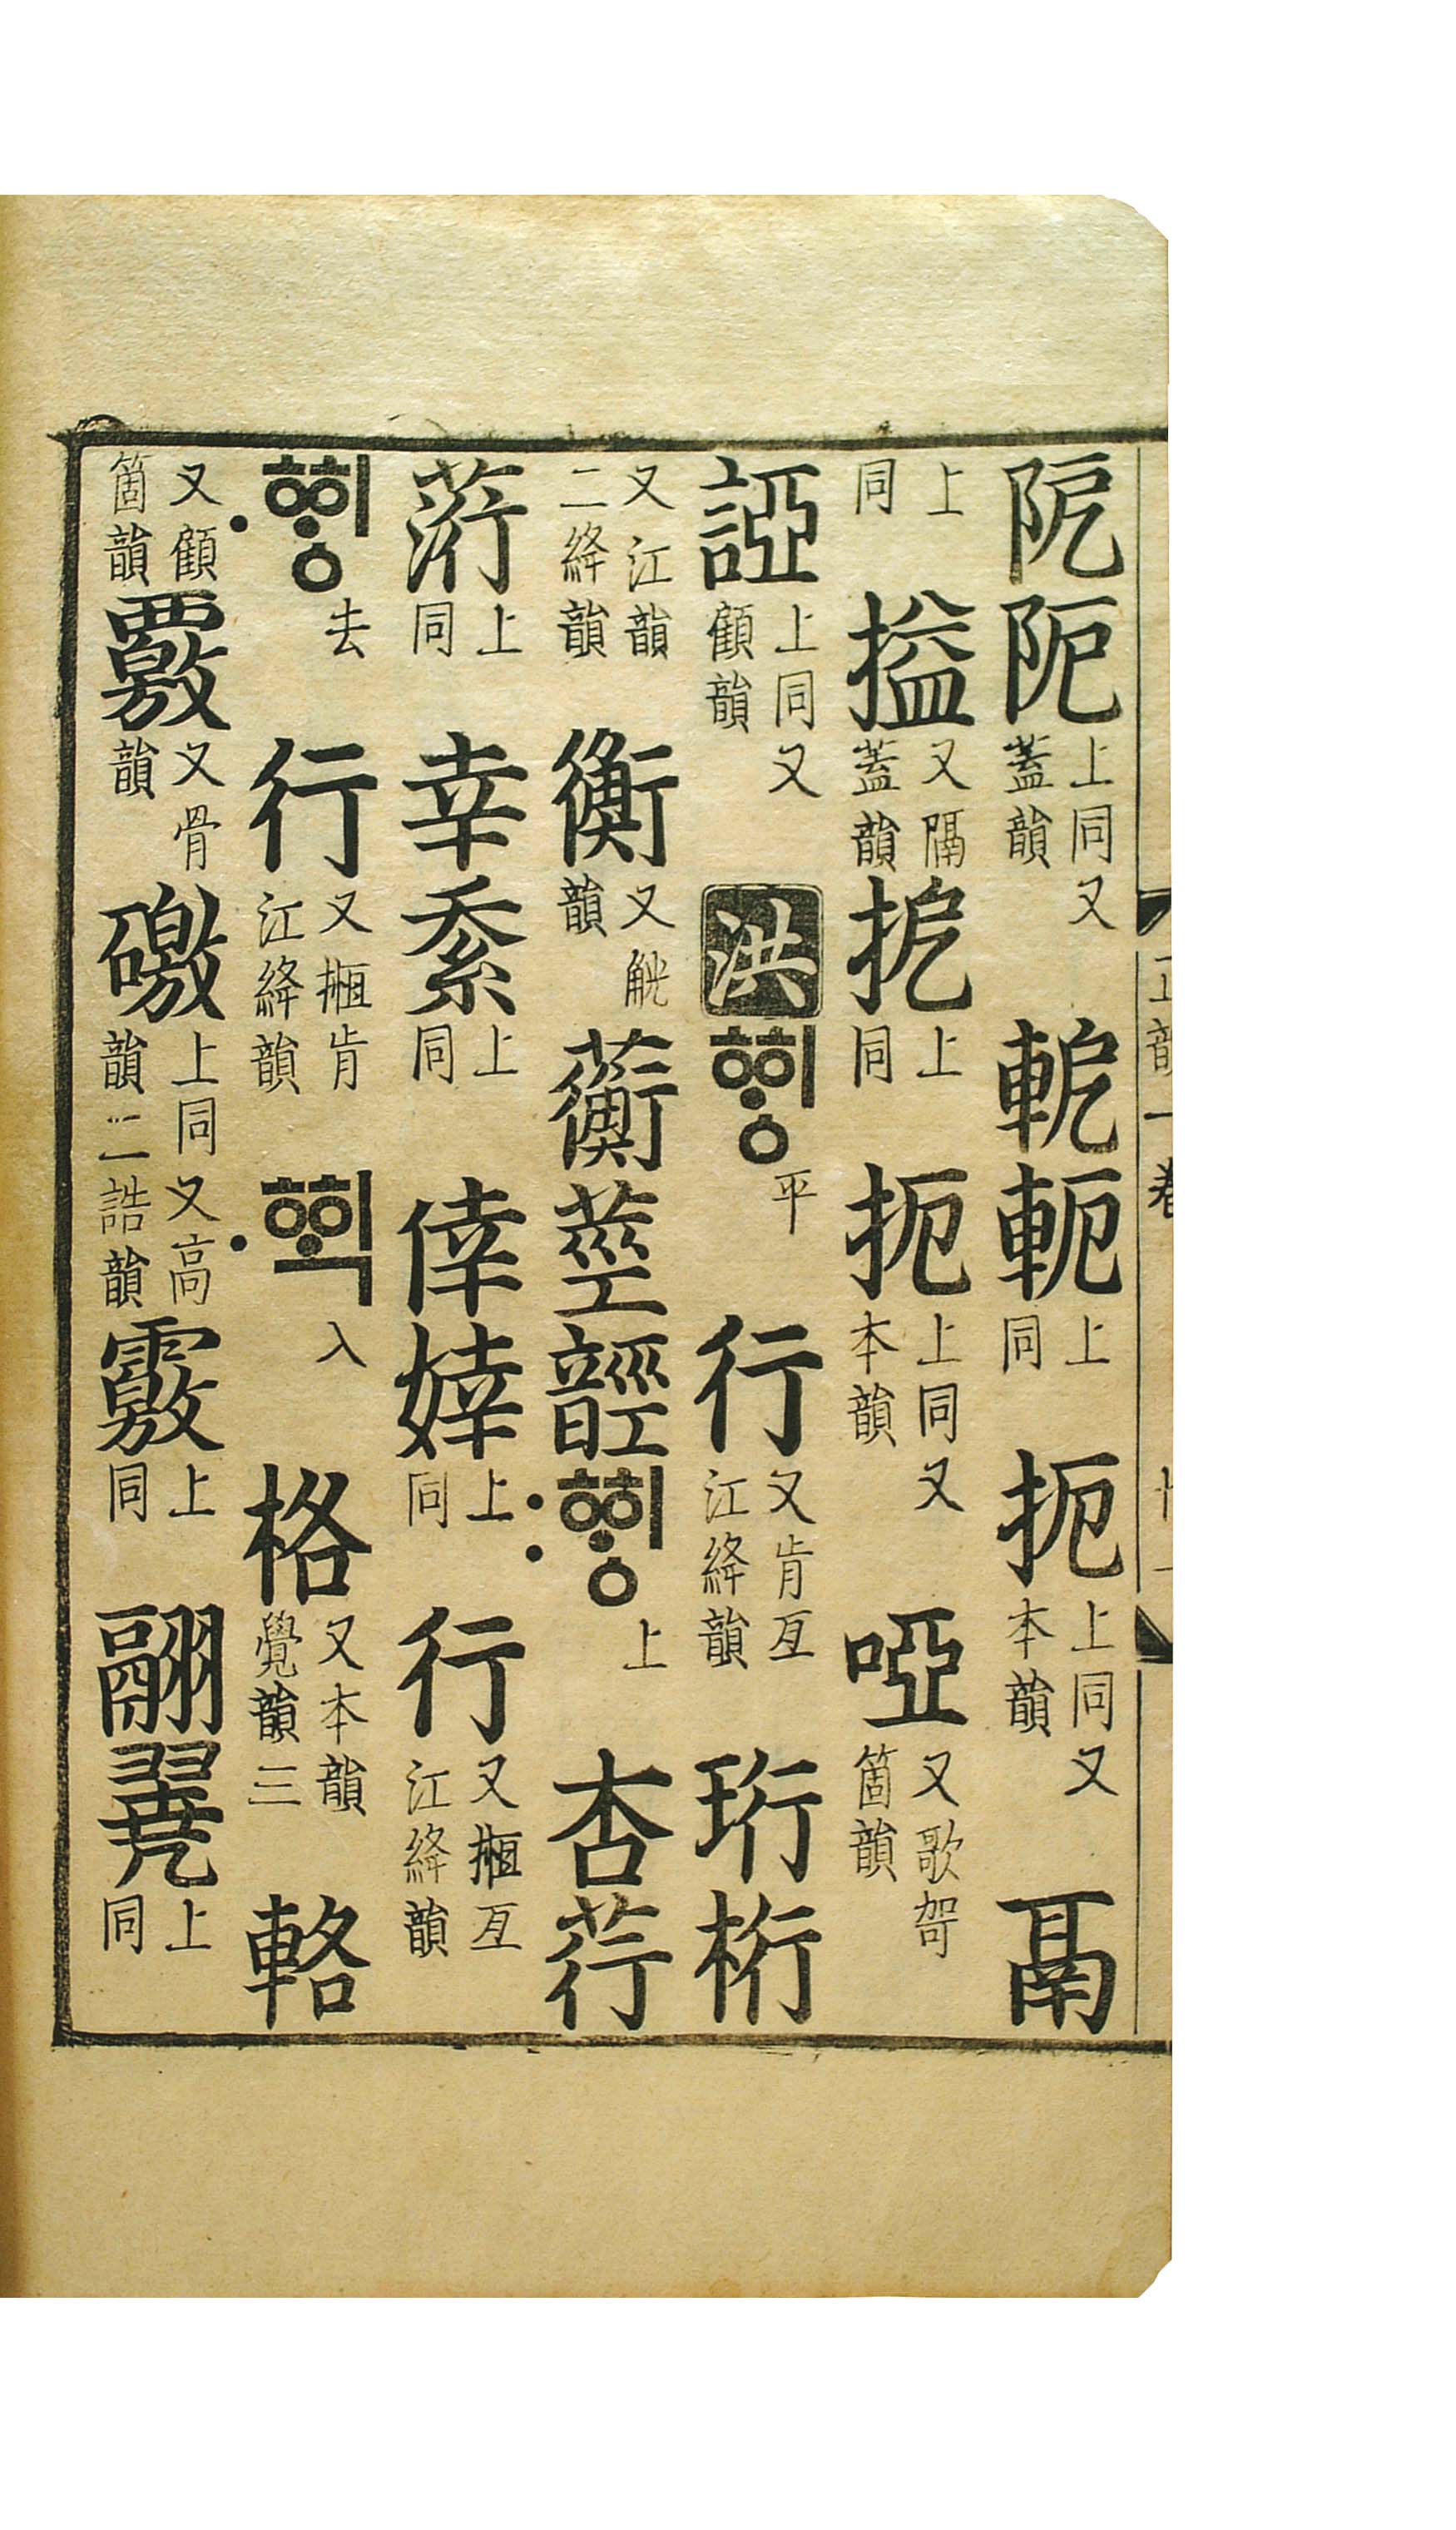 阸阨上同又蓋韻軶軛上同扼上同又本韻鬲
上同搤又隔蓋韻挖上同扼上同又本韻啞又歌哿箇韻
誙上同又顧韻洪ᅘᆡᇰ平行又肯亙江絳韻珩桁
又江韻二絳韻衡又觥韻蘅莖䪫〯ᅘᆡᇰ上杏荇
莕上同幸㚔上同倖婞上同行又搄亙江絳韻
〮ᅘᆡᇰ去行又搄肯江絳韻〮ᅘᆡᆨ入格又本韻三覺韻輅
又顧箇韻覈又骨韻礉上同又高誥韻二覈上同翮